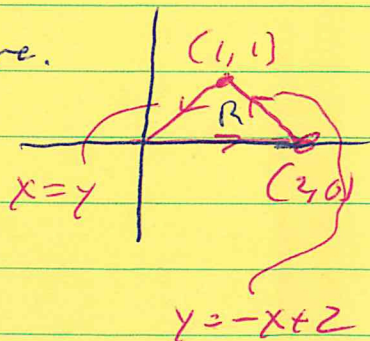 re.
(1, 1)
R
x = y
(2, 0)
y = -x + 2